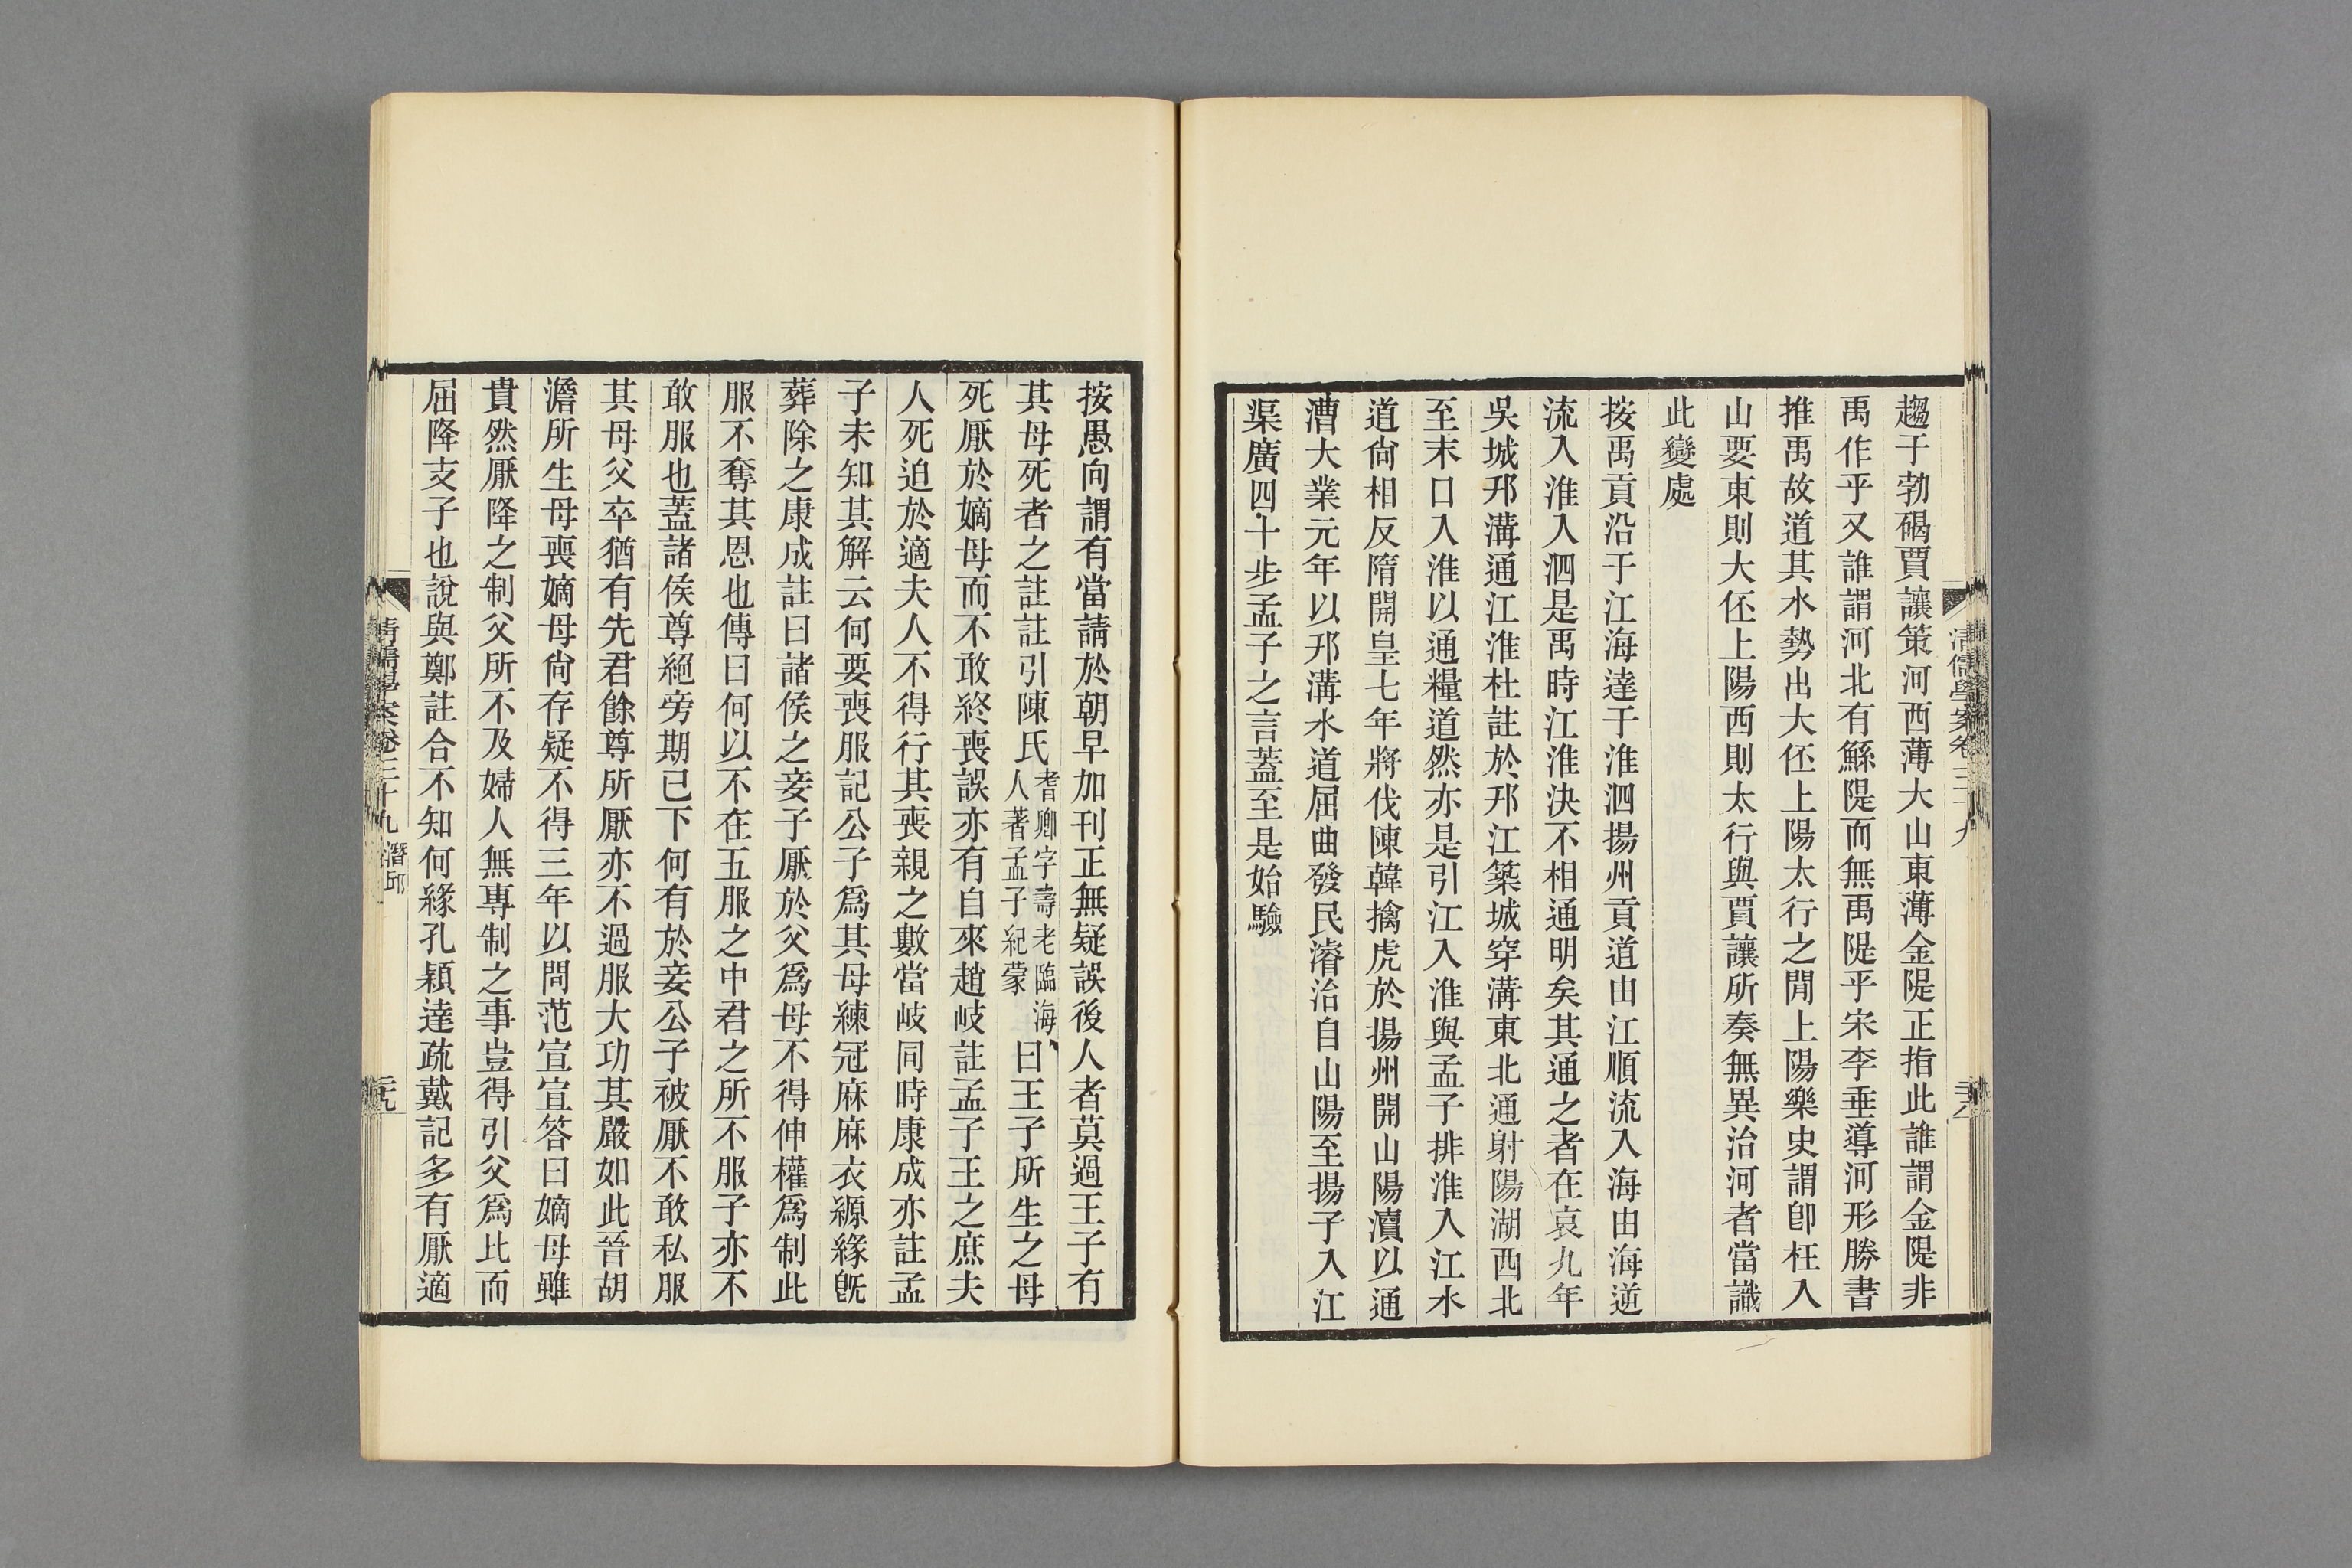 趨于勃碣賈讓策河西薄大山東薄金隄正指此誰謂金隄非
禹作乎又誰謂河北有鯀隄而無禹隄乎宋李垂導河形勝書
推禹故道其水勢出大伾上陽太行之閒上陽樂史謂卽枉入
山要東則大伾上陽西則太行與賈讓所奏無異治河者當識
此變處
按禹貢沿于江海達于淮泗揚州貢道由江順流入海由海逆
流入淮入泗是禹時江淮決不相通明矣其通之者在哀九年
吳城邗溝通江淮杜註於邗江築城穿溝東北通射陽湖西北
至末口入淮以通糧道然亦是引江入淮與孟子排淮入江水
道尙相反隋開皇七年將伐陳韓擒虎於揚州開山陽瀆以通
漕大業元年以邗溝水道屈曲發民濬治自山陽至揚子入江
渠廣四十步孟子之言蓋至是始驗
清儒學案卷三十九
三十八
按愚向謂有當請於朝早加刊正無疑誤後人者莫過王子有
其母死者之註註引陳氏耆卿字壽老臨海人著孟子紀蒙曰王子所生之母
死厭於嫡母而不敢終喪誤亦有自來趙岐註孟子王之庶夫
人死迫於適夫人不得行其喪親之數當岐同時康成亦註孟
子未知其解云何要喪服記公子爲其母練冠麻麻衣縓緣旣
葬除之康成註曰諸侯之妾子厭於父爲母不得伸權爲制此
服不奪其恩也傳曰何以不在五服之中君之所不服子亦不
敢服也蓋諸侯尊絕旁期已下何有於妾公子被厭不敢私服
其母父卒猶有先君餘尊所厭亦不過服大功其嚴如此晉胡
澹所生母喪嫡母尙存疑不得三年以問范宣宣答曰嫡母雖
貴然厭降之制父所不及婦人無專制之事豈得引父爲比而
屈降支子也說與鄭註合不知何緣孔穎達疏戴記多有厭適
清儒學案卷三十九 潛邱
三十九